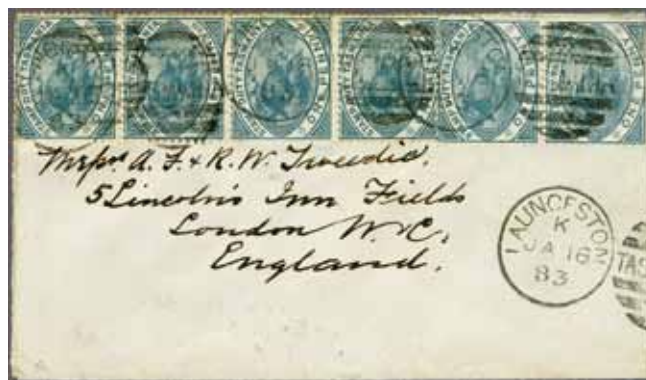 Messrs A. F. & R. W. Tweedie.
5 Lincoln's Inn Fields
London W.C,
England.
LAUNCESTON
K
JA 16
83
TAS